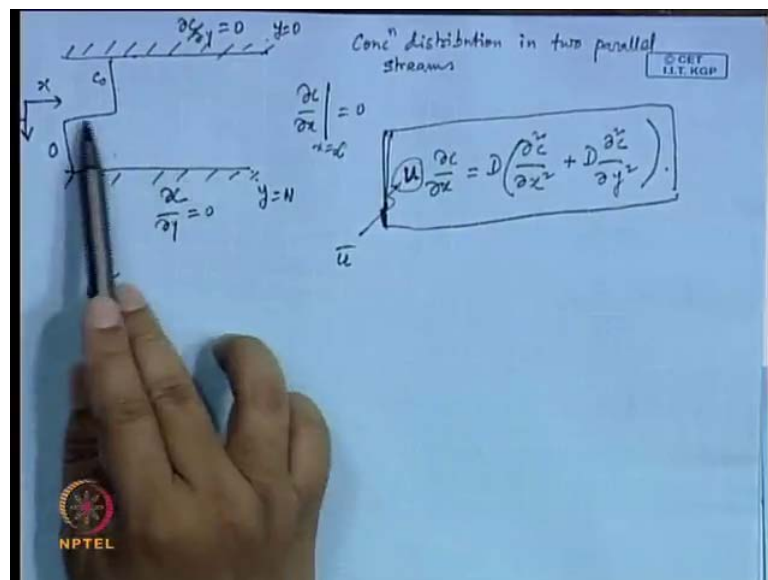 ∂c/∂y = 0 y=0
Concⁿ distribution in two parallel
streams
© CET
I.I.T. KGP
x
c₀
0
∂c/∂x |ₓ₌ = 0
u ∂c/∂x = D(∂²c/∂x² + D ∂²c/∂y²).
ū
∂c/∂y = 0
y=H
NPTEL